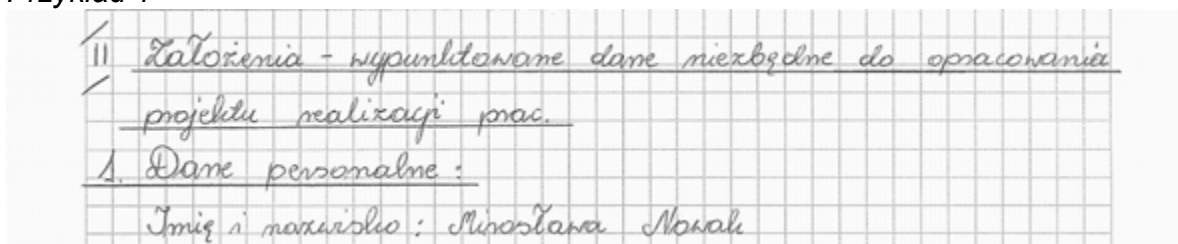 II Założenia - wypunktowane dane niezbędne do opracowania
projektu realizacji prac.
1. Dane personalne:
Imię i nazwisko: Mirosława Nowak